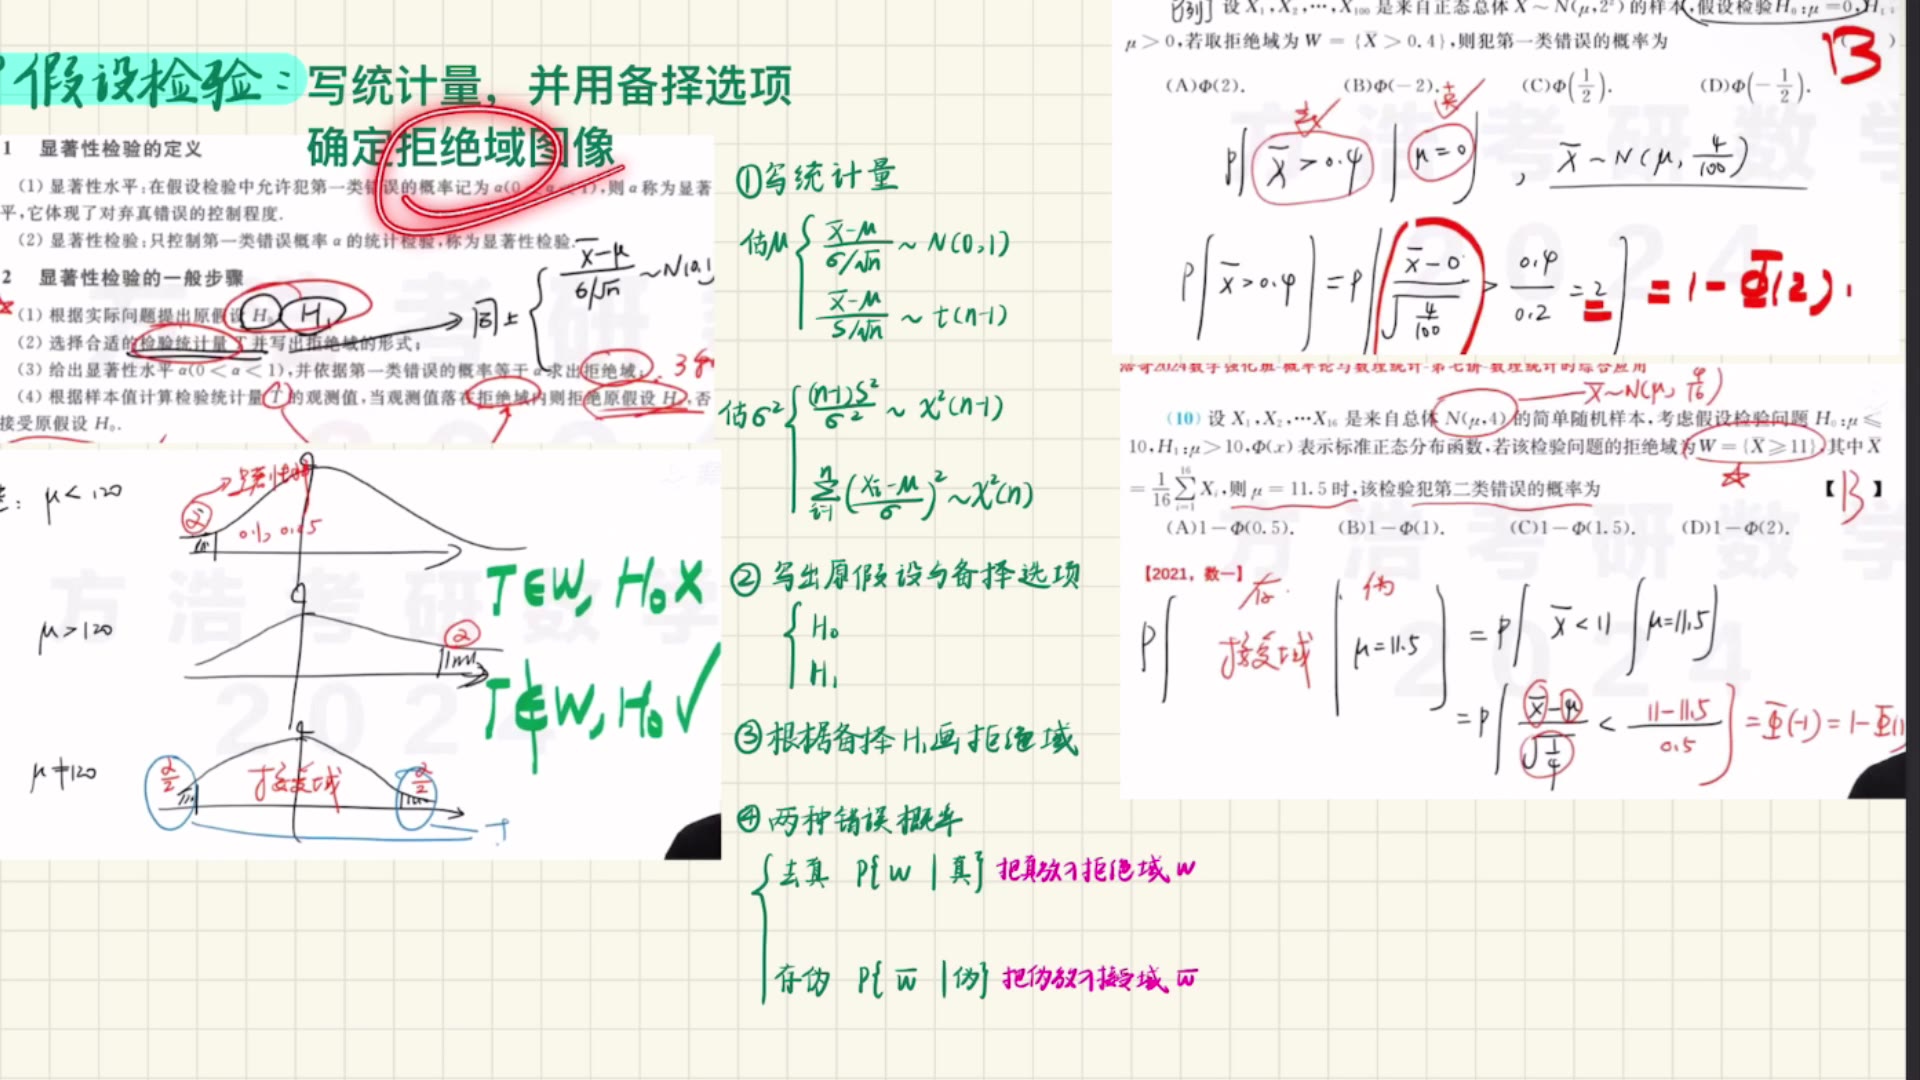 假设检验：写统计量，并用备择选项
确定拒绝域图像
1 显著性检验的定义
(1) 显著性水平：在假设检验中允许犯第一类错误的概率记为 α(0
则 α 称为显著
平，它体现了对弃真错误的控制程度.
(2) 显著性检验：只控制第一类错误概率 α 的统计检验，称为显著性检验.
2 显著性检验的一般步骤
(1) 根据实际问题提出原假设 H₀ H₁
(2) 选择合适的检验统计量 T 并写出拒绝域的形式；
(3) 给出显著性水平 α(0<α<1)，并依据第一类错误的概率等于 α 求出拒绝域；
(4) 根据样本值计算检验统计量 T 的观测值，当观测值落在拒绝域内则拒绝原假设 H₀，否
接受原假设 H₀.
同上 { (X̄-μ)/(σ/√n) ~N(0,1
μ<120
α
0.1, 0.05
μ>120
α
μ≠120
α/2 接受域 α/2
T∈W, H₀ X
T∉W, H₀ ✓
①写统计量
估μ { (X̄-μ)/(σ/√n) ~ N(0,1)
(X̄-μ)/(S/√n) ~ t(n-1)
估σ² { (n-1)S²/σ² ~ χ²(n-1)
Σ((Xi-μ)/σ)² ~ χ²(n)
②写出原假设与备择选项
{ H₀
H₁
③根据备择H₁画拒绝域
④两种错误概率
{ 去真 P{ W | 真} 把真放入拒绝域 W
存伪 P{ W̄ | 伪} 把伪放入接受域 W̄
[例] 设 X₁,X₂,…,X₁₀₀ 是来自正态总体 X～N(μ,2²) 的样本，假设检验 H₀:μ=0,H₁:
μ>0，若取拒绝域为 W={X̄>0.4}，则犯第一类错误的概率为 ( B )
(A)Φ(2). (B)Φ(-2). (C)Φ(1/2). (D)Φ(-1/2).
去 真
P{ X̄>0.4 | μ=0 }, X̄~N(μ, 4/100)
P{ X̄>0.4 } = P{ (X̄-0)/√(4/100) > 0.4/0.2 = 2 } = 1-Φ(2).
浩哥2024数学强化班-概率论与数理统计-第七讲-数理统计的综合应用
X̄~N(μ, 4/16)
(10) 设 X₁,X₂,…X₁₆ 是来自总体 N(μ,4) 的简单随机样本，考虑假设检验问题 H₀:μ≤
10,H₁:μ>10,Φ(x) 表示标准正态分布函数，若该检验问题的拒绝域为 W={X̄≥11}，其中 X̄
=1/16 Σ Xᵢ，则 μ=11.5 时，该检验犯第二类错误的概率为 【B】
(A)1-Φ(0.5). (B)1-Φ(1). (C)1-Φ(1.5). (D)1-Φ(2).
【2021，数一】 存 伪
P{ 接受域 | μ=11.5 } = P{ X̄<11 | μ=11.5 }
=P{ (X̄-μ)/√(1/4) < (11-11.5)/0.5 } = Φ(-1) = 1-Φ(1
方浩考研数学
2024